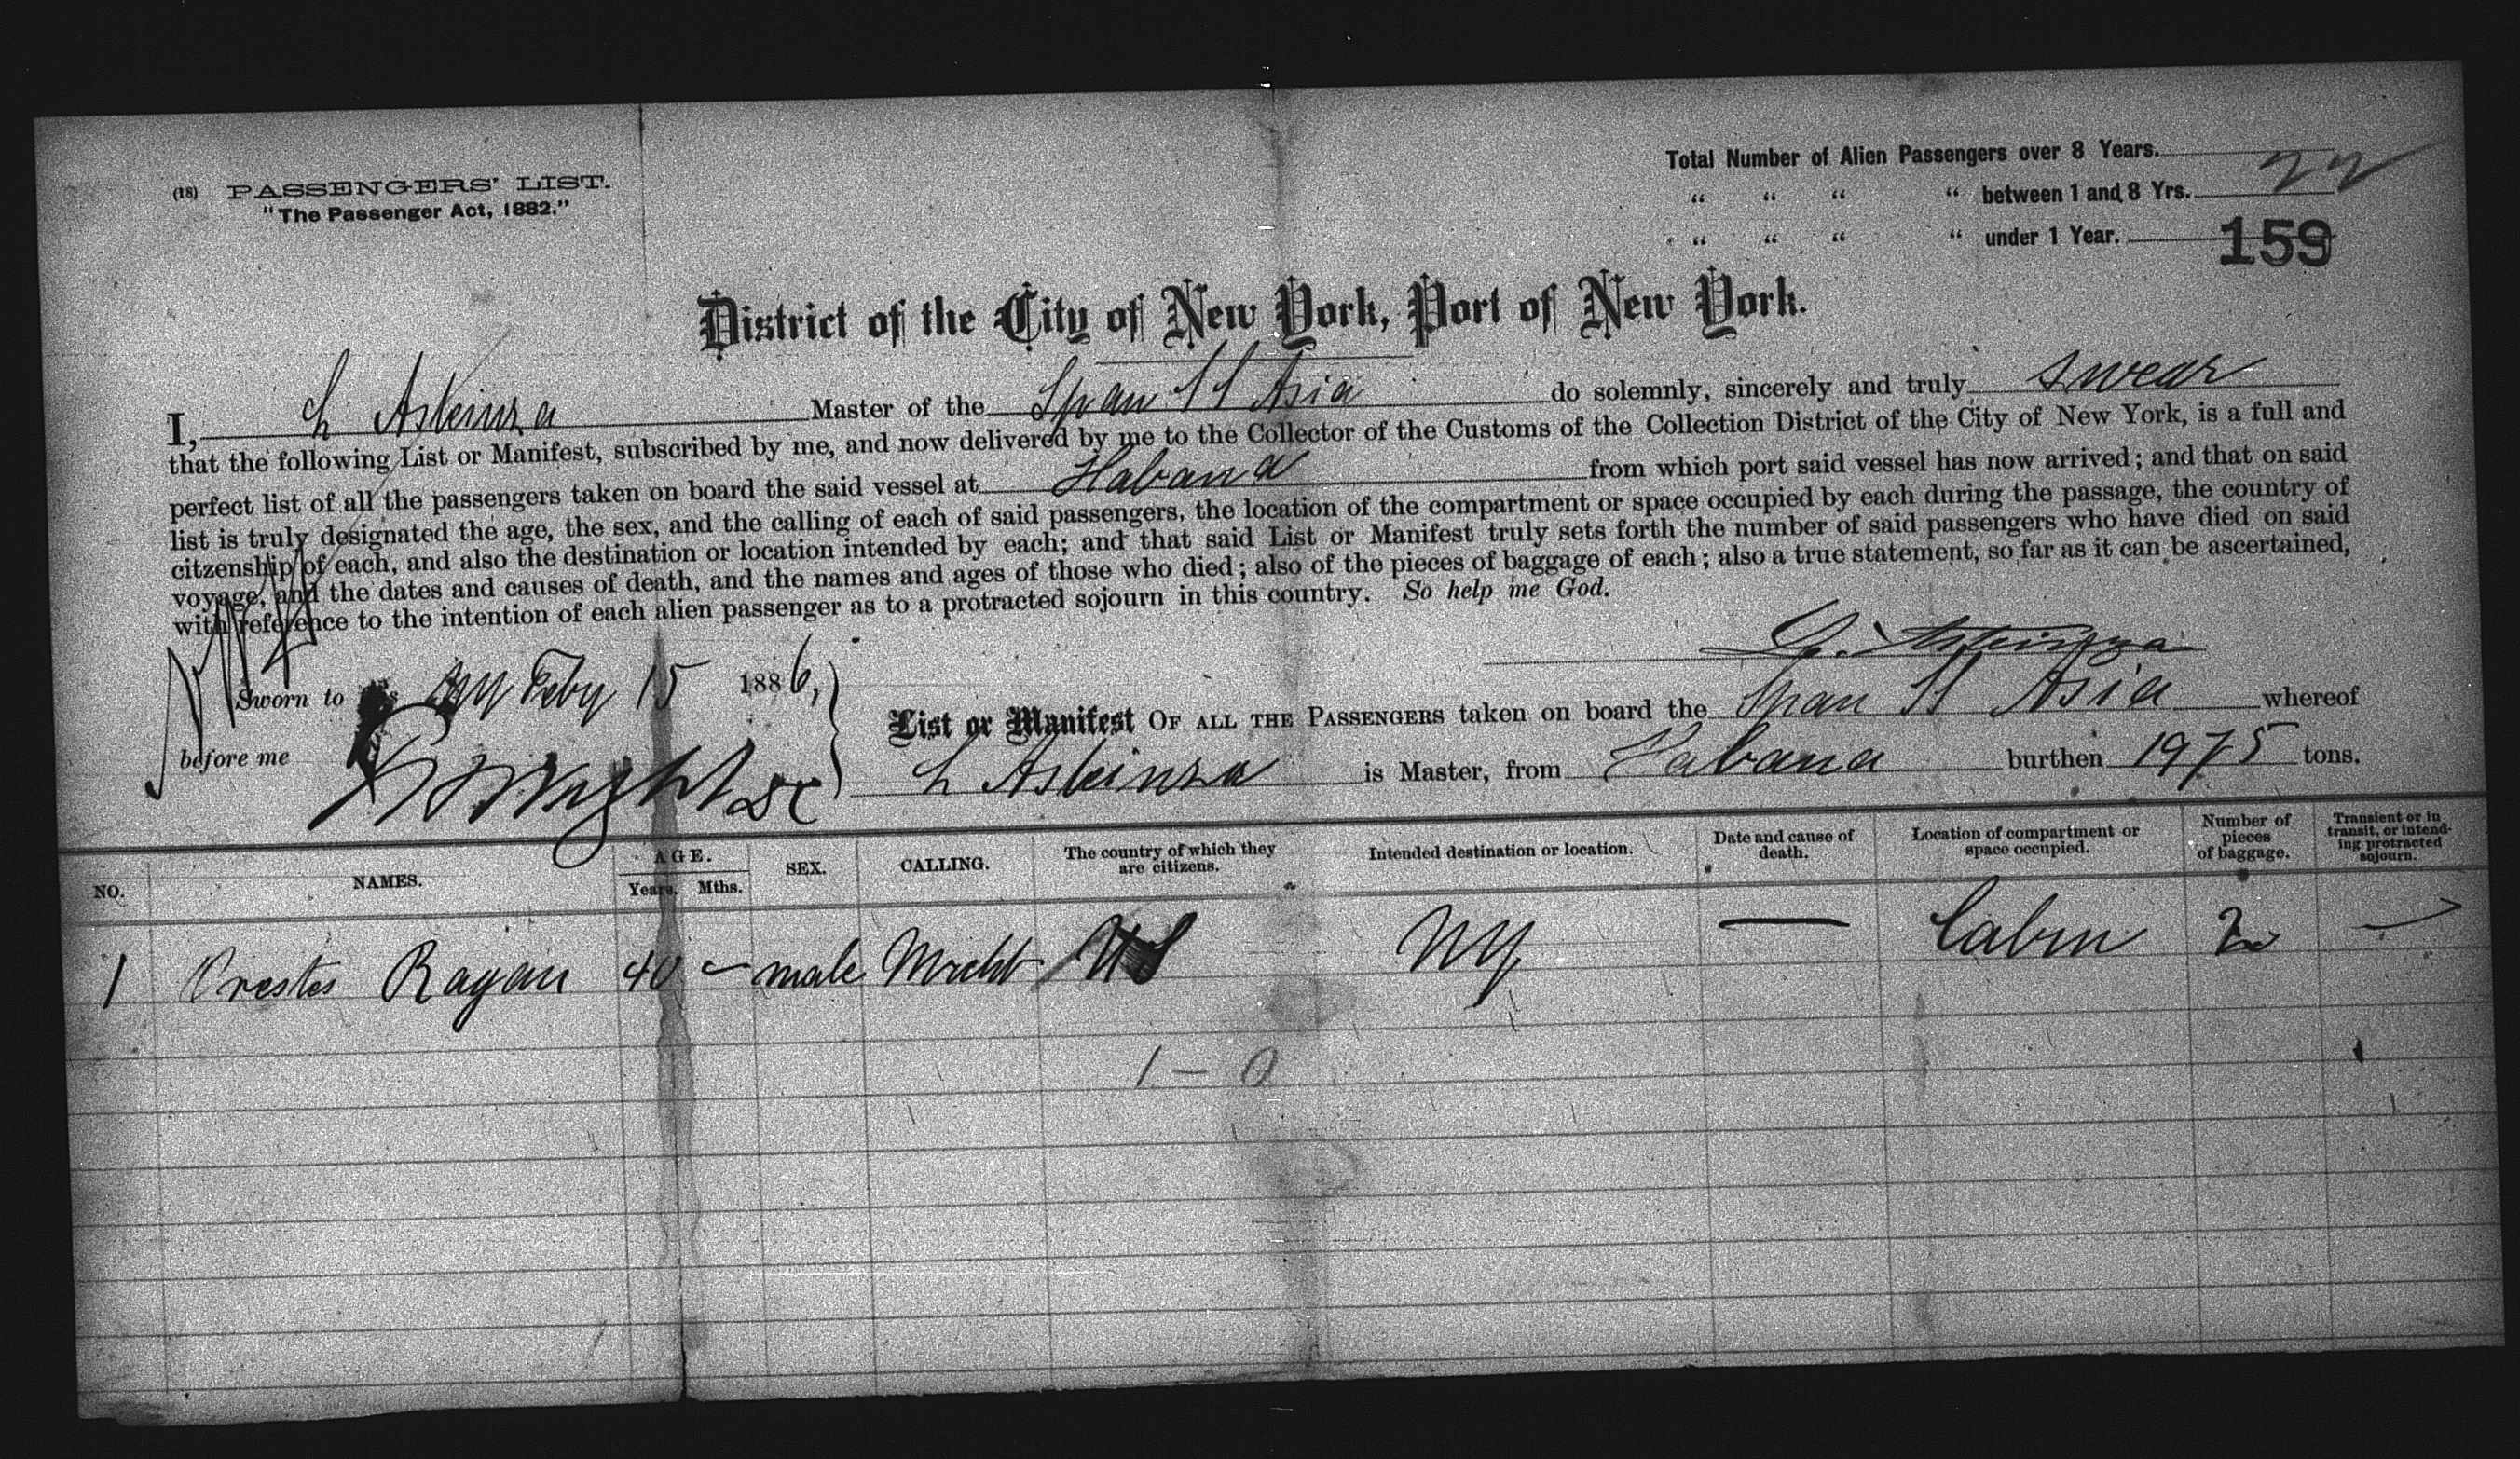 (18) PASSENGERS' LIST.
"The Passenger Act, 1882."
Total Number of Alien Passengers over 8 Years.
" " " " between 1 and 8 Yrs.
" " " " under 1 Year.
159
District of the City of New York, Port of New York.
I, L Asteinza Master of the Span SS Asia do solemnly, sincerely and truly swear
that the following List or Manifest, subscribed by me, and now delivered by me to the Collector of the Customs of the Collection District of the City of New York, is a full and
perfect list of all the passengers taken on board the said vessel at Habana from which port said vessel has now arrived; and that on said
list is truly designated the age, the sex, and the calling of each of said passengers, the location of the compartment or space occupied by each during the passage, the country of
citzenship of each, and also the destination or location intended by each; and that said List or Manifest truly sets forth the number of said passengers who have died on said
voyage, and the dates and causes of death, and the names and ages of those who died; also of the pieces of baggage of each; also a true statement, so far as it can be ascertained,
with reference to the intention of each alien passenger as to a protracted sojourn in this country. So help me God.
L. Asteinza
Sworn to Feby 15 1886,
before me
List or Manifest OF ALL THE PASSENGERS taken on board the Span SS Asia whereof
L Asteinza is Master, from Habana burthen 1975 tons.
NO. NAMES. AGE. Years. Mths. SEX. CALLING. The country of which they are citizens. Intended destination or location. Date and cause of death. Location of compartment or space occupied. Number of pieces of baggage. Transient or in transit, or intending protracted sojourn.
1 Orestes Ragan 40 – male Mrcht US NY — Cabin 2 —
1 – 0